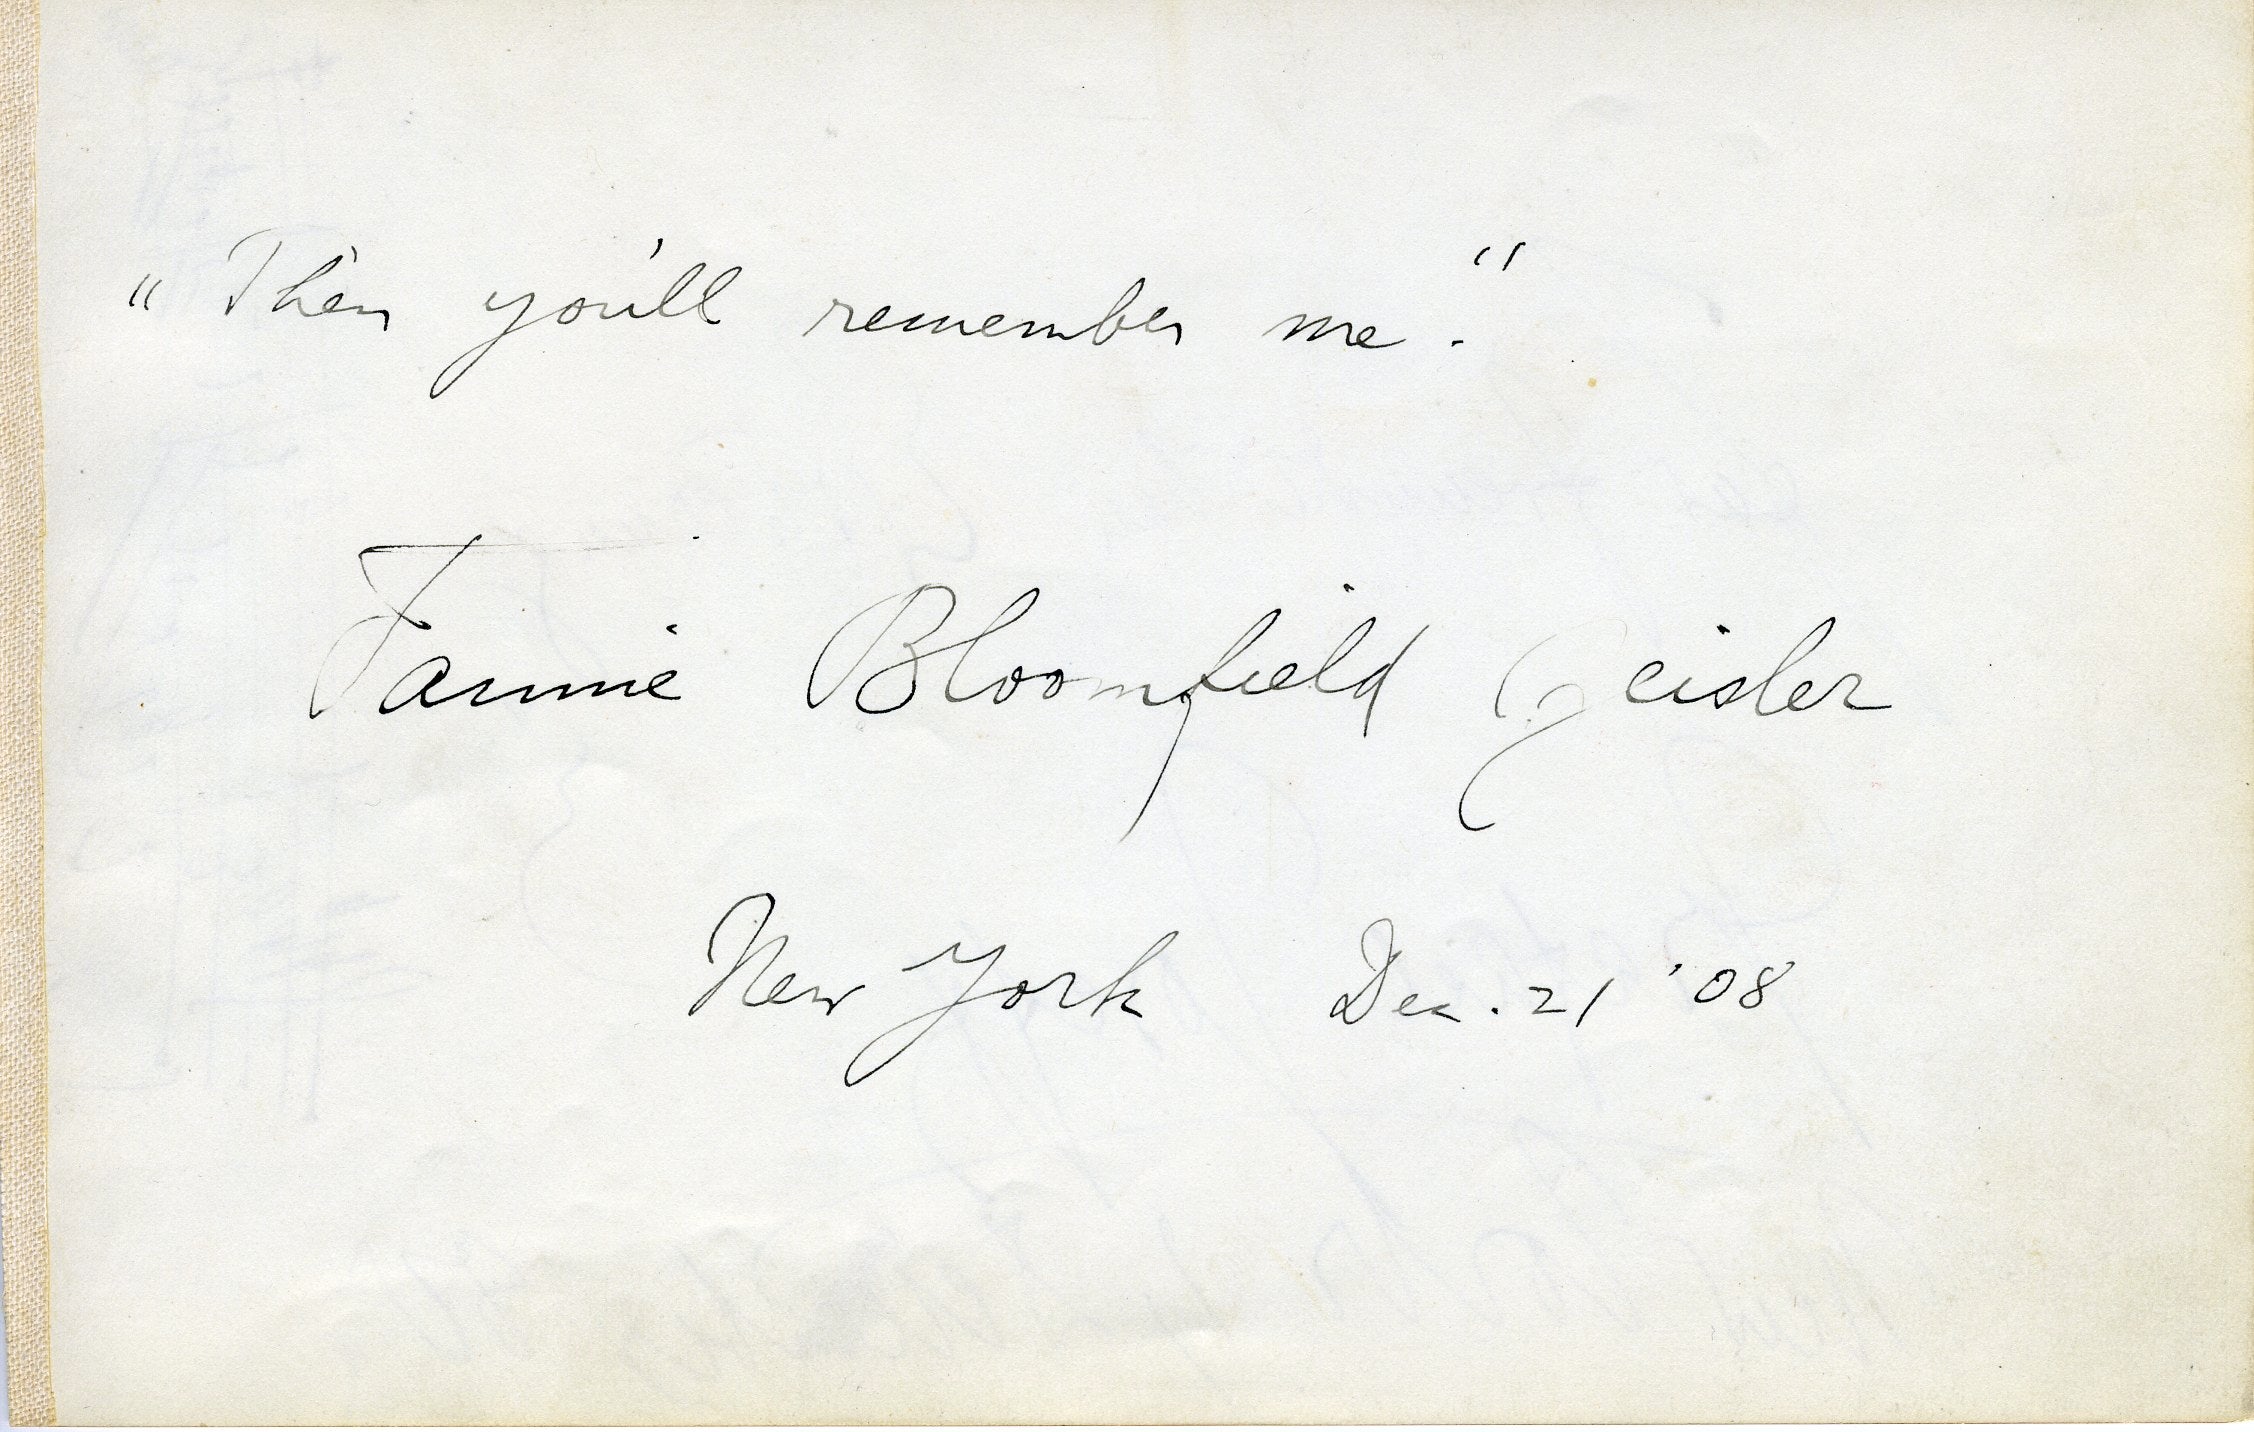 "Then you'll remember me."
Fannie Bloomfield Zeisler
New York Dec. 21 '08